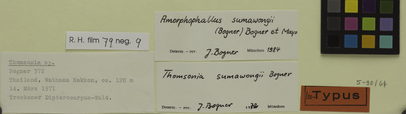 Amorphophallus sumawongii
(Bogner) Bogner et Mayo
Determ. — rev. J. Bogner München 1984
R. H. film 79 neg. 9
Thomsonia sp.
Bogner 372
Thailand, Makham Nakhon, ca. 120 m
14. März 1971
Trockener Dipterocarpus-Wald.
Thomsonia sumawongii Bogner
Determ. — rev. J. Bogner München 1976
Typus